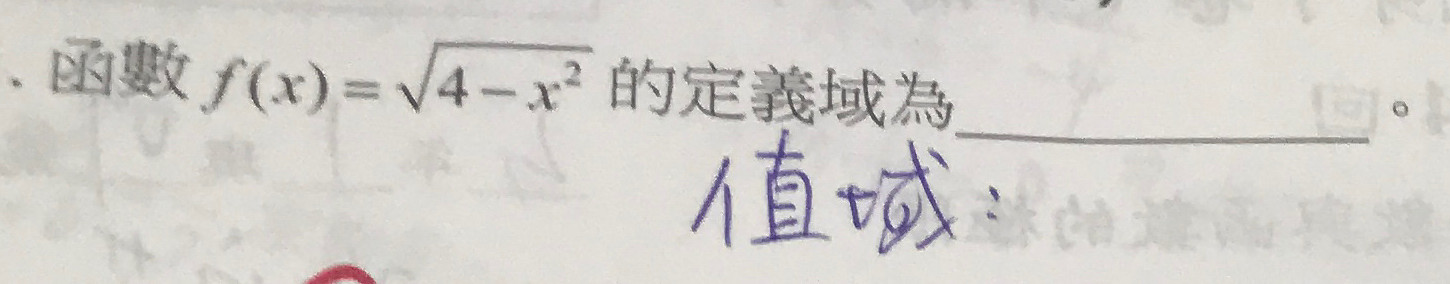 . 函數 f(x) = √4 − x² 的定義域為________。
值域：